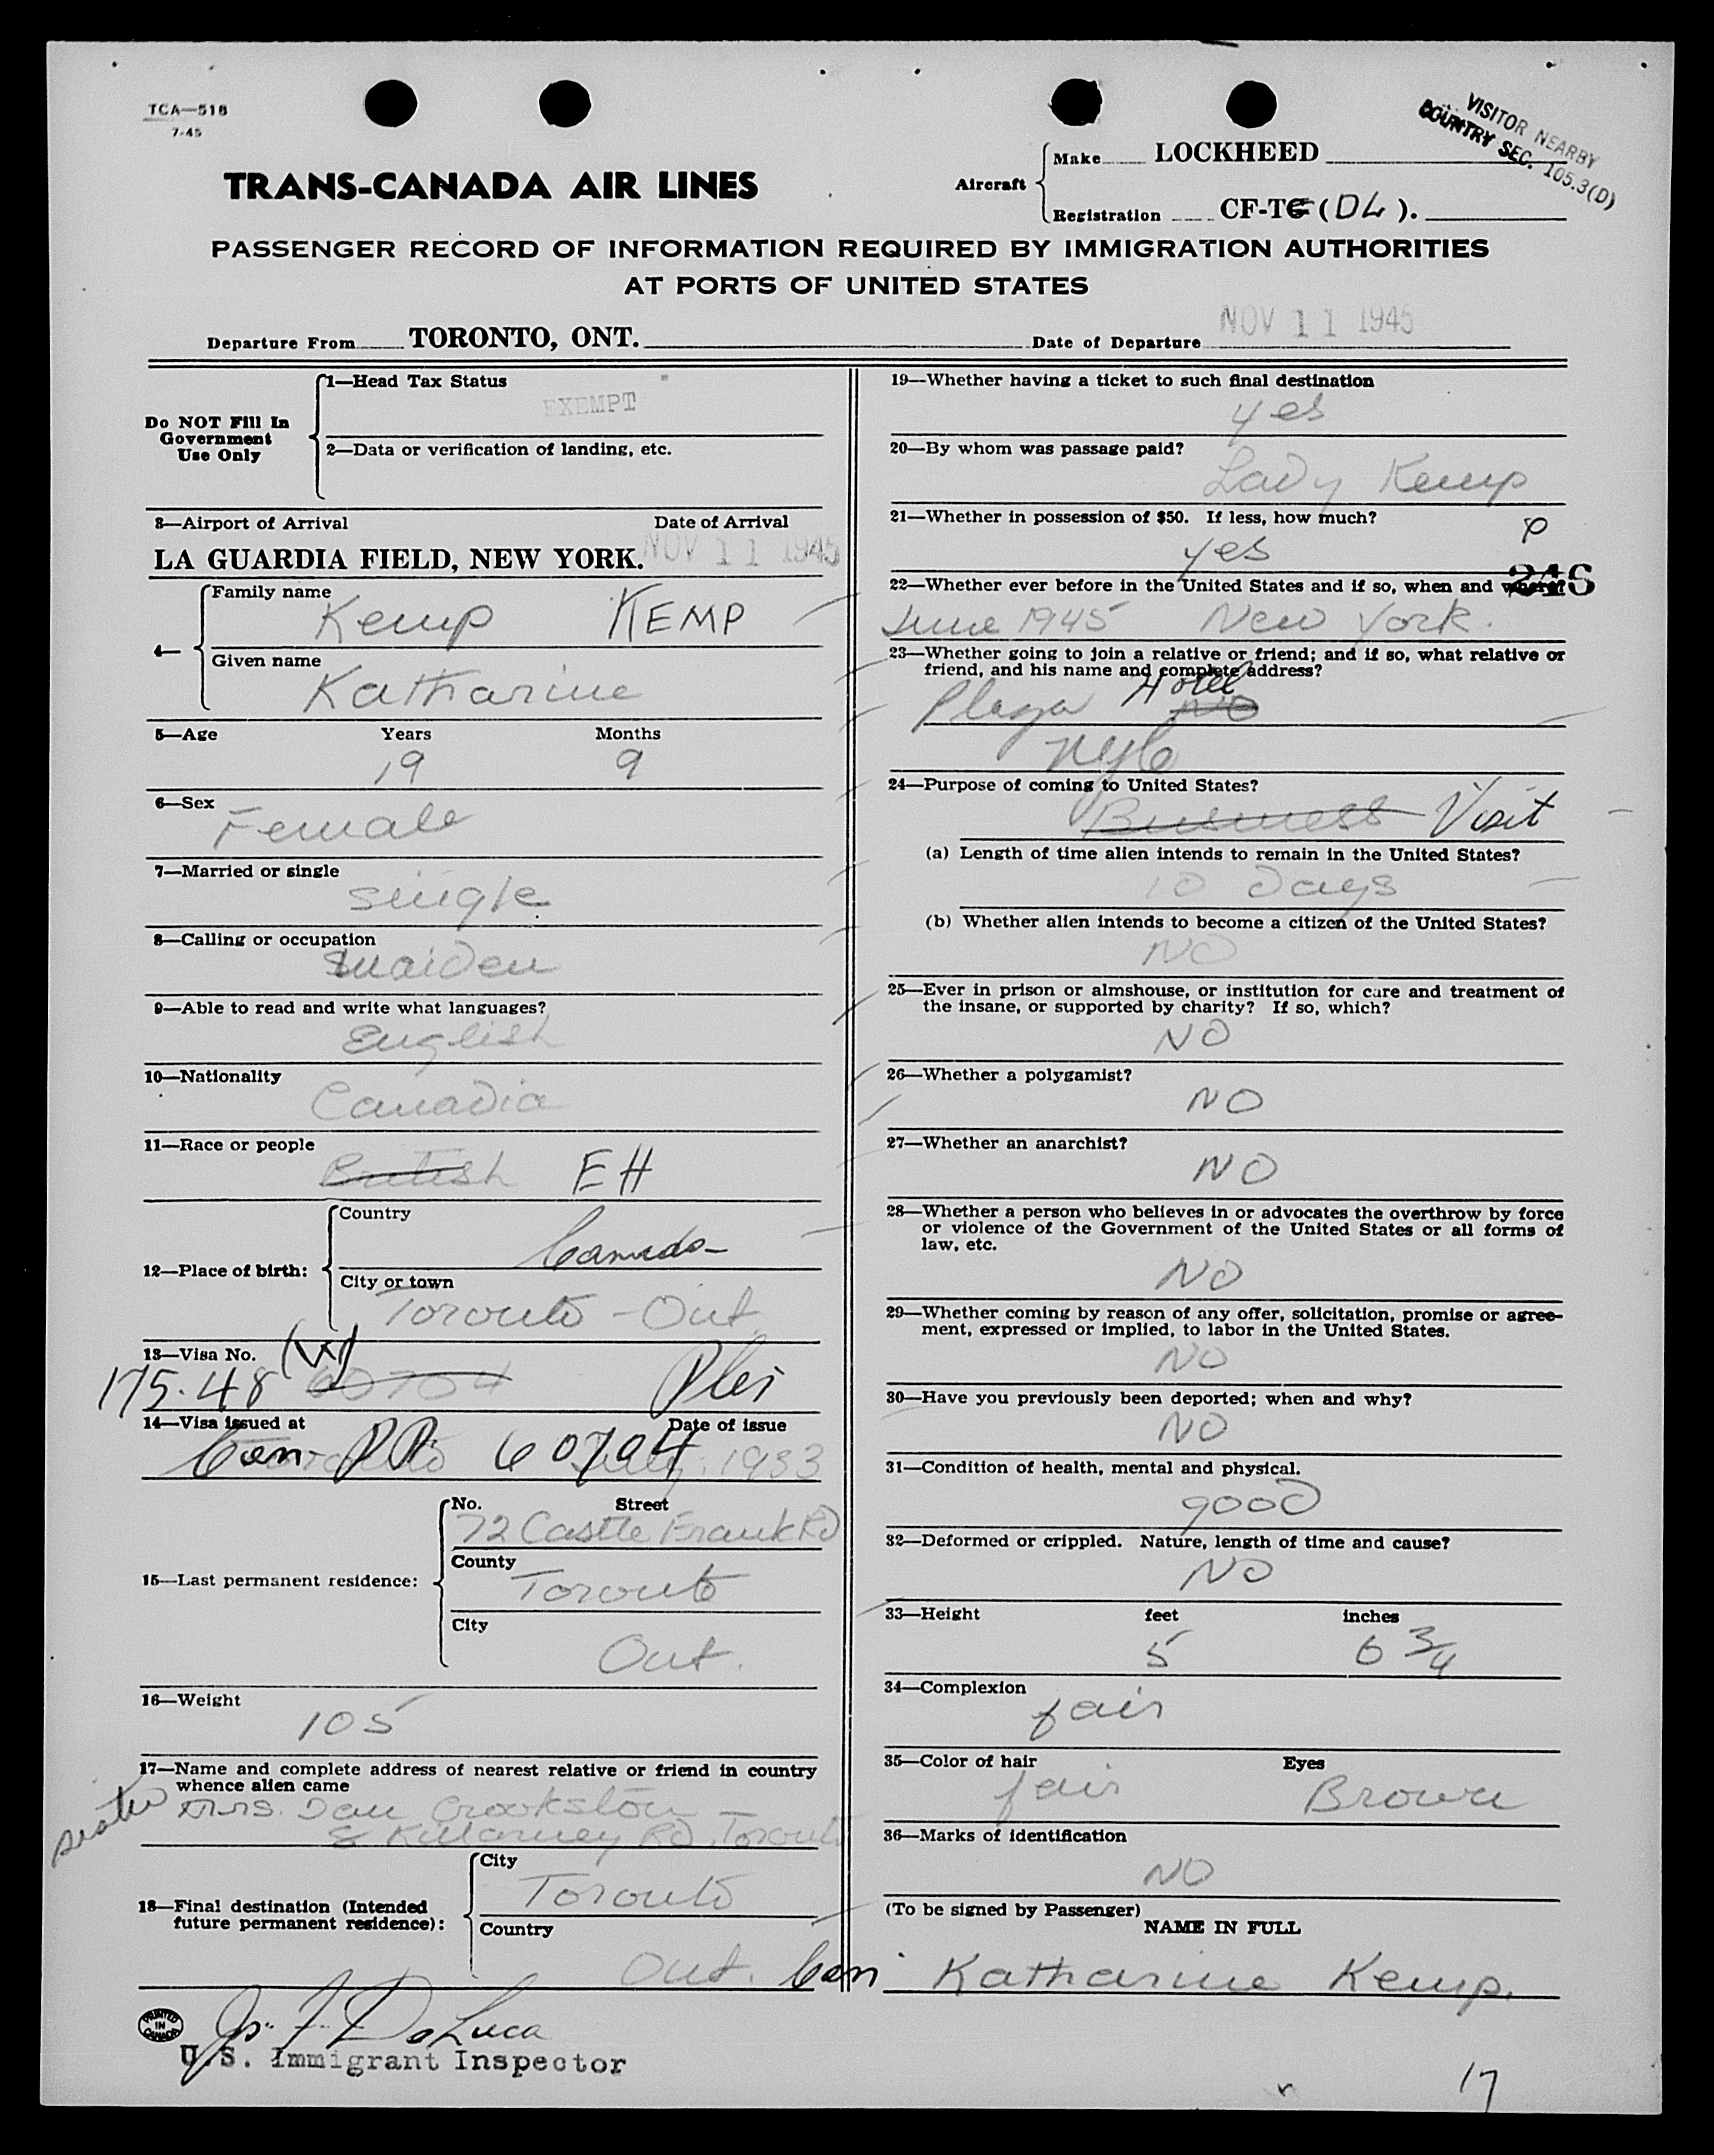 TCA—518
7-45
VISITOR NEARBY
COUNTRY SEC. 105.3(D)
TRANS-CANADA AIR LINES
Aircraft
Make LOCKHEED
Registration CF-TC (DL).
PASSENGER RECORD OF INFORMATION REQUIRED BY IMMIGRATION AUTHORITIES
AT PORTS OF UNITED STATES
Departure From TORONTO, ONT.
Date of Departure NOV 11 1945
Do NOT Fill In
Government
Use Only
1—Head Tax Status
EXEMPT
2—Data or verification of landing, etc.
3—Airport of Arrival Date of Arrival
LA GUARDIA FIELD, NEW YORK. NOV 11 1945
4—
Family name
Kemp KEMP
Given name
Katharine
5—Age Years Months
19 9
6—Sex
Female
7—Married or single
single
8—Calling or occupation
maiden
9—Able to read and write what languages?
English
10—Nationality
Canadia
11—Race or people
British EH
12—Place of birth:
Country
Canada
City or town
Toronto - Ont
13—Visa No.
175.48 60704
14—Visa issued at Date of issue
Can PP 60704 July 1933
15—Last permanent residence:
No. Street
72 Castle Frank Rd
County
Toronto
City
Ont.
16—Weight
105
17—Name and complete address of nearest relative or friend in country
whence alien came
sister Mrs. Dan Crookston
8 Killarney Rd. Toronto
18—Final destination (Intended
future permanent residence):
City
Toronto
Country
Ont. Can
Js. F. DeLuca
PRINTED
IN
CANADA
U.S. Immigrant Inspector
19—Whether having a ticket to such final destination
yes
20—By whom was passage paid?
Lady Kemp
21—Whether in possession of $50. If less, how much?
yes
246
22—Whether ever before in the United States and if so, when and where?
June 1945 New York.
23—Whether going to join a relative or friend; and if so, what relative or
friend, and his name and complete address?
Plaza Hotel NO
NYC
24—Purpose of coming to United States?
Business Visit
(a) Length of time alien intends to remain in the United States?
10 Days
(b) Whether alien intends to become a citizen of the United States?
NO
25—Ever in prison or almshouse, or institution for care and treatment of
the insane, or supported by charity? If so, which?
NO
26—Whether a polygamist?
NO
27—Whether an anarchist?
NO
28—Whether a person who believes in or advocates the overthrow by force
or violence of the Government of the United States or all forms of
law, etc.
NO
29—Whether coming by reason of any offer, solicitation, promise or agree-
ment, expressed or implied, to labor in the United States.
NO
30—Have you previously been deported; when and why?
NO
31—Condition of health, mental and physical.
good
32—Deformed or crippled. Nature, length of time and cause?
NO
33—Height feet inches
5 6 3/4
34—Complexion
fair
35—Color of hair Eyes
fair Brown
36—Marks of identification
NO
(To be signed by Passenger)
NAME IN FULL
Katharine Kemp.
17